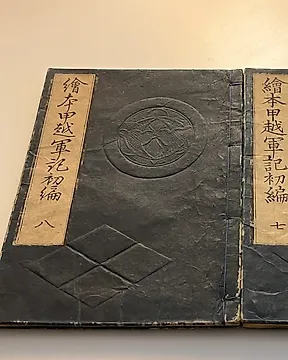 繪本甲越軍記初編
七
繪本甲越軍記初編
八